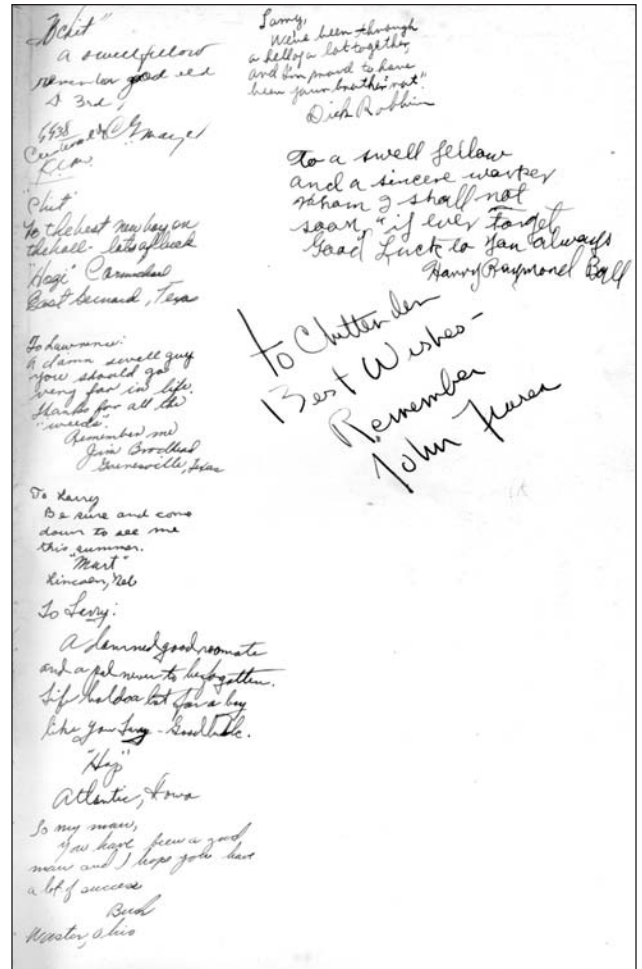 "Chit"
a swell fellow
remember good old
A 3rd,
6938
Mayer
K.C. Mo.
"Chit"
To the best new boy on
the hall - lots of luck
"Hogi" Carmichael
East Bernard, Texas
To Lawrence:
A damn swell guy
you should go
very far in life.
thanks for all the
"weeds".
Remember me
Jim Brodhead
Gainesville, Texas
To Larry
Be sure and come
down to see me
this summer.
"Mart"
Lincoln, Neb
To Larry:
A damned good roomate
and a pal never to be forgotten.
Life holds a lot for a boy
like you Larry - Good luck.
"Hap"
Atlantic, Iowa
To my man,
You have been a good
man and I hope you have
a lot of success
Bush
Wooster, Ohio
Larry,
We've been through
a hell of a lot together,
and I'm proud to have
been your brother "rat".
Dick Robbin
To a swell fellow
and a sincere worker
whom I shall not
soon, "if ever" forget
Good Luck to you always
Harry Raymond Ball
To Chittenden
Best Wishes -
Remember
John